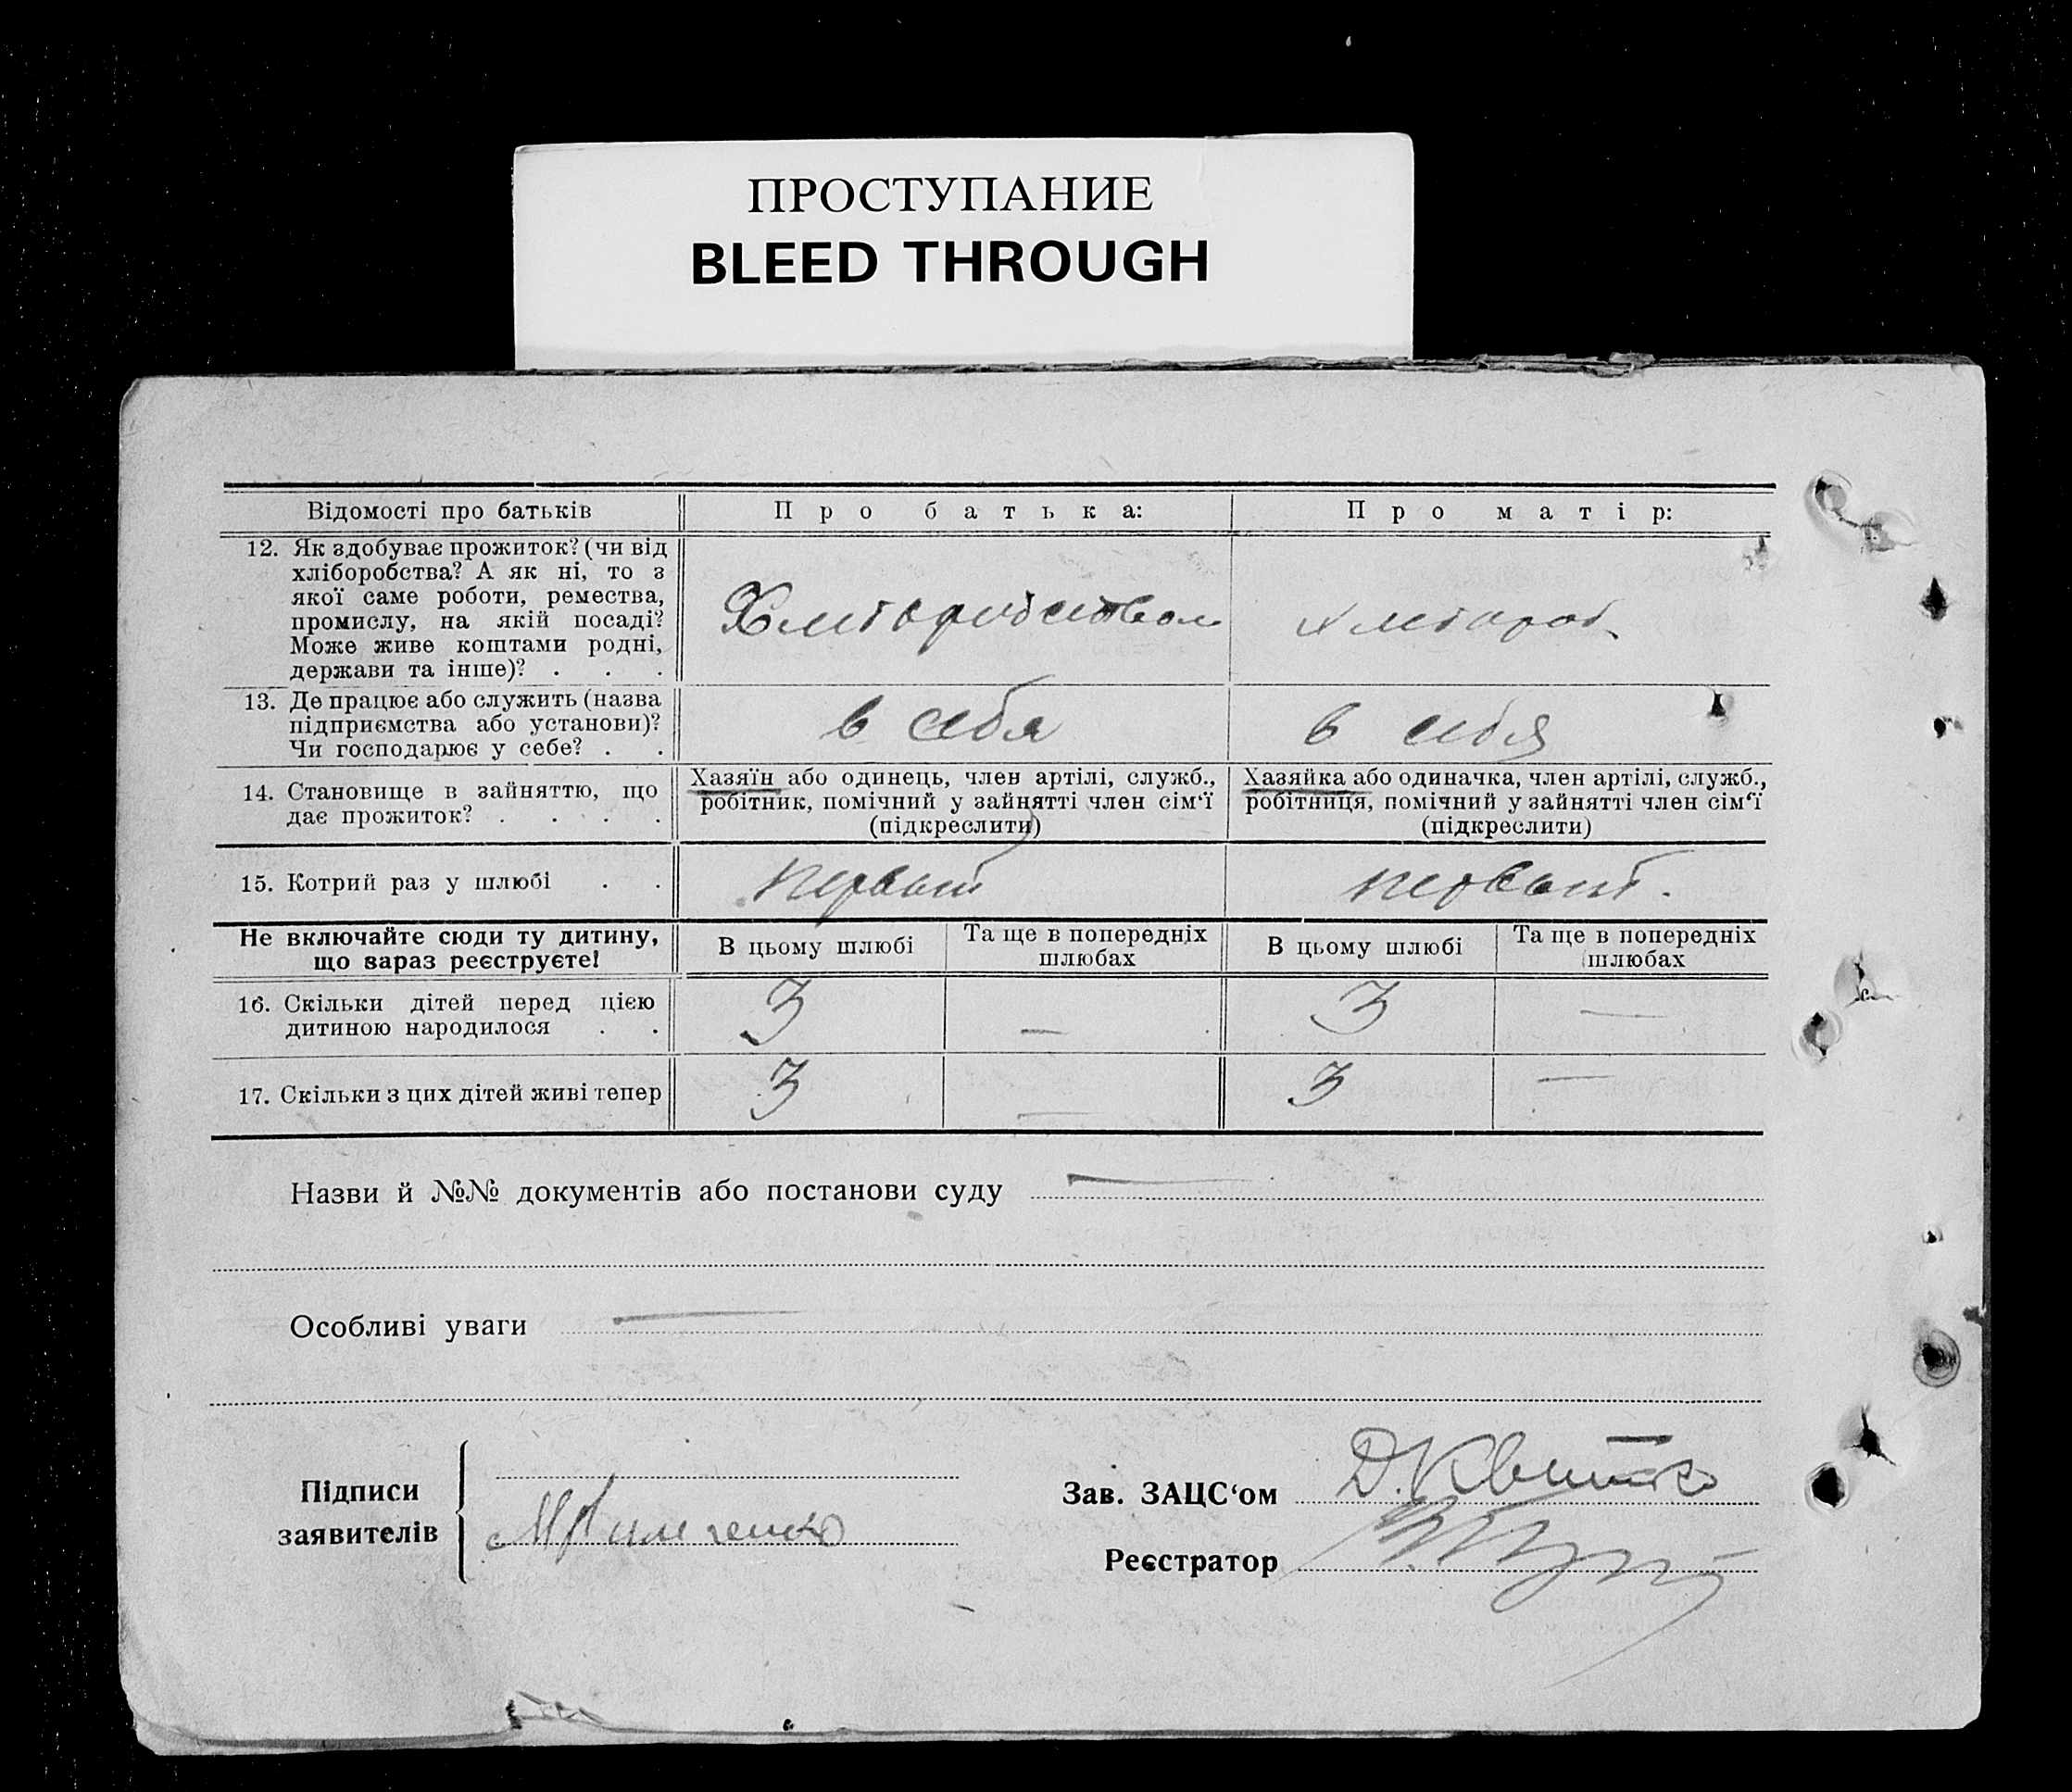 ПРОСТУПАНИЕ
BLEED THROUGH
Відомості про батьків
Про батька:
Про матір:
12. Як здобуває прожиток? (чи від
хліборобства? А як ні, то з
якої саме роботи, ремества,
промислу, на якій посаді?
Може живе коштами родні,
держави та інше)? . . .
Хлібороб
13. Де працює або служить (назва
підприємства або установи)?
Чи господарює у себе? . .
в себя
в себя
14. Становище в зайняттю, що
дає прожиток? . . . .
Хазяїн або одинець, член артілі, служб.,
робітник, помічний у зайнятті член сім‘ї
(підкреслити)
Хазяйка або одиначка, член артілі, служб.,
робітниця, помічний у зайнятті член сім‘ї
(підкреслити)
15. Котрий раз у шлюбі . .
первый
первый.
Не включайте сюди ту дитину,
що зараз реєструєте!
В цьому шлюбі
Та ще в попередніх
шлюбах
В цьому шлюбі
Та ще в попередніх
шлюбах
16. Скільки дітей перед цією
дитиною народилося . .
3
—
3
—
17. Скільки з цих дітей живі тепер
3
—
3
—
Назви й №№ документів або постанови суду —
Особливі уваги —
Підписи
заявителів
Зав. ЗАЦС‘ом Д. Квитко
Реєстратор